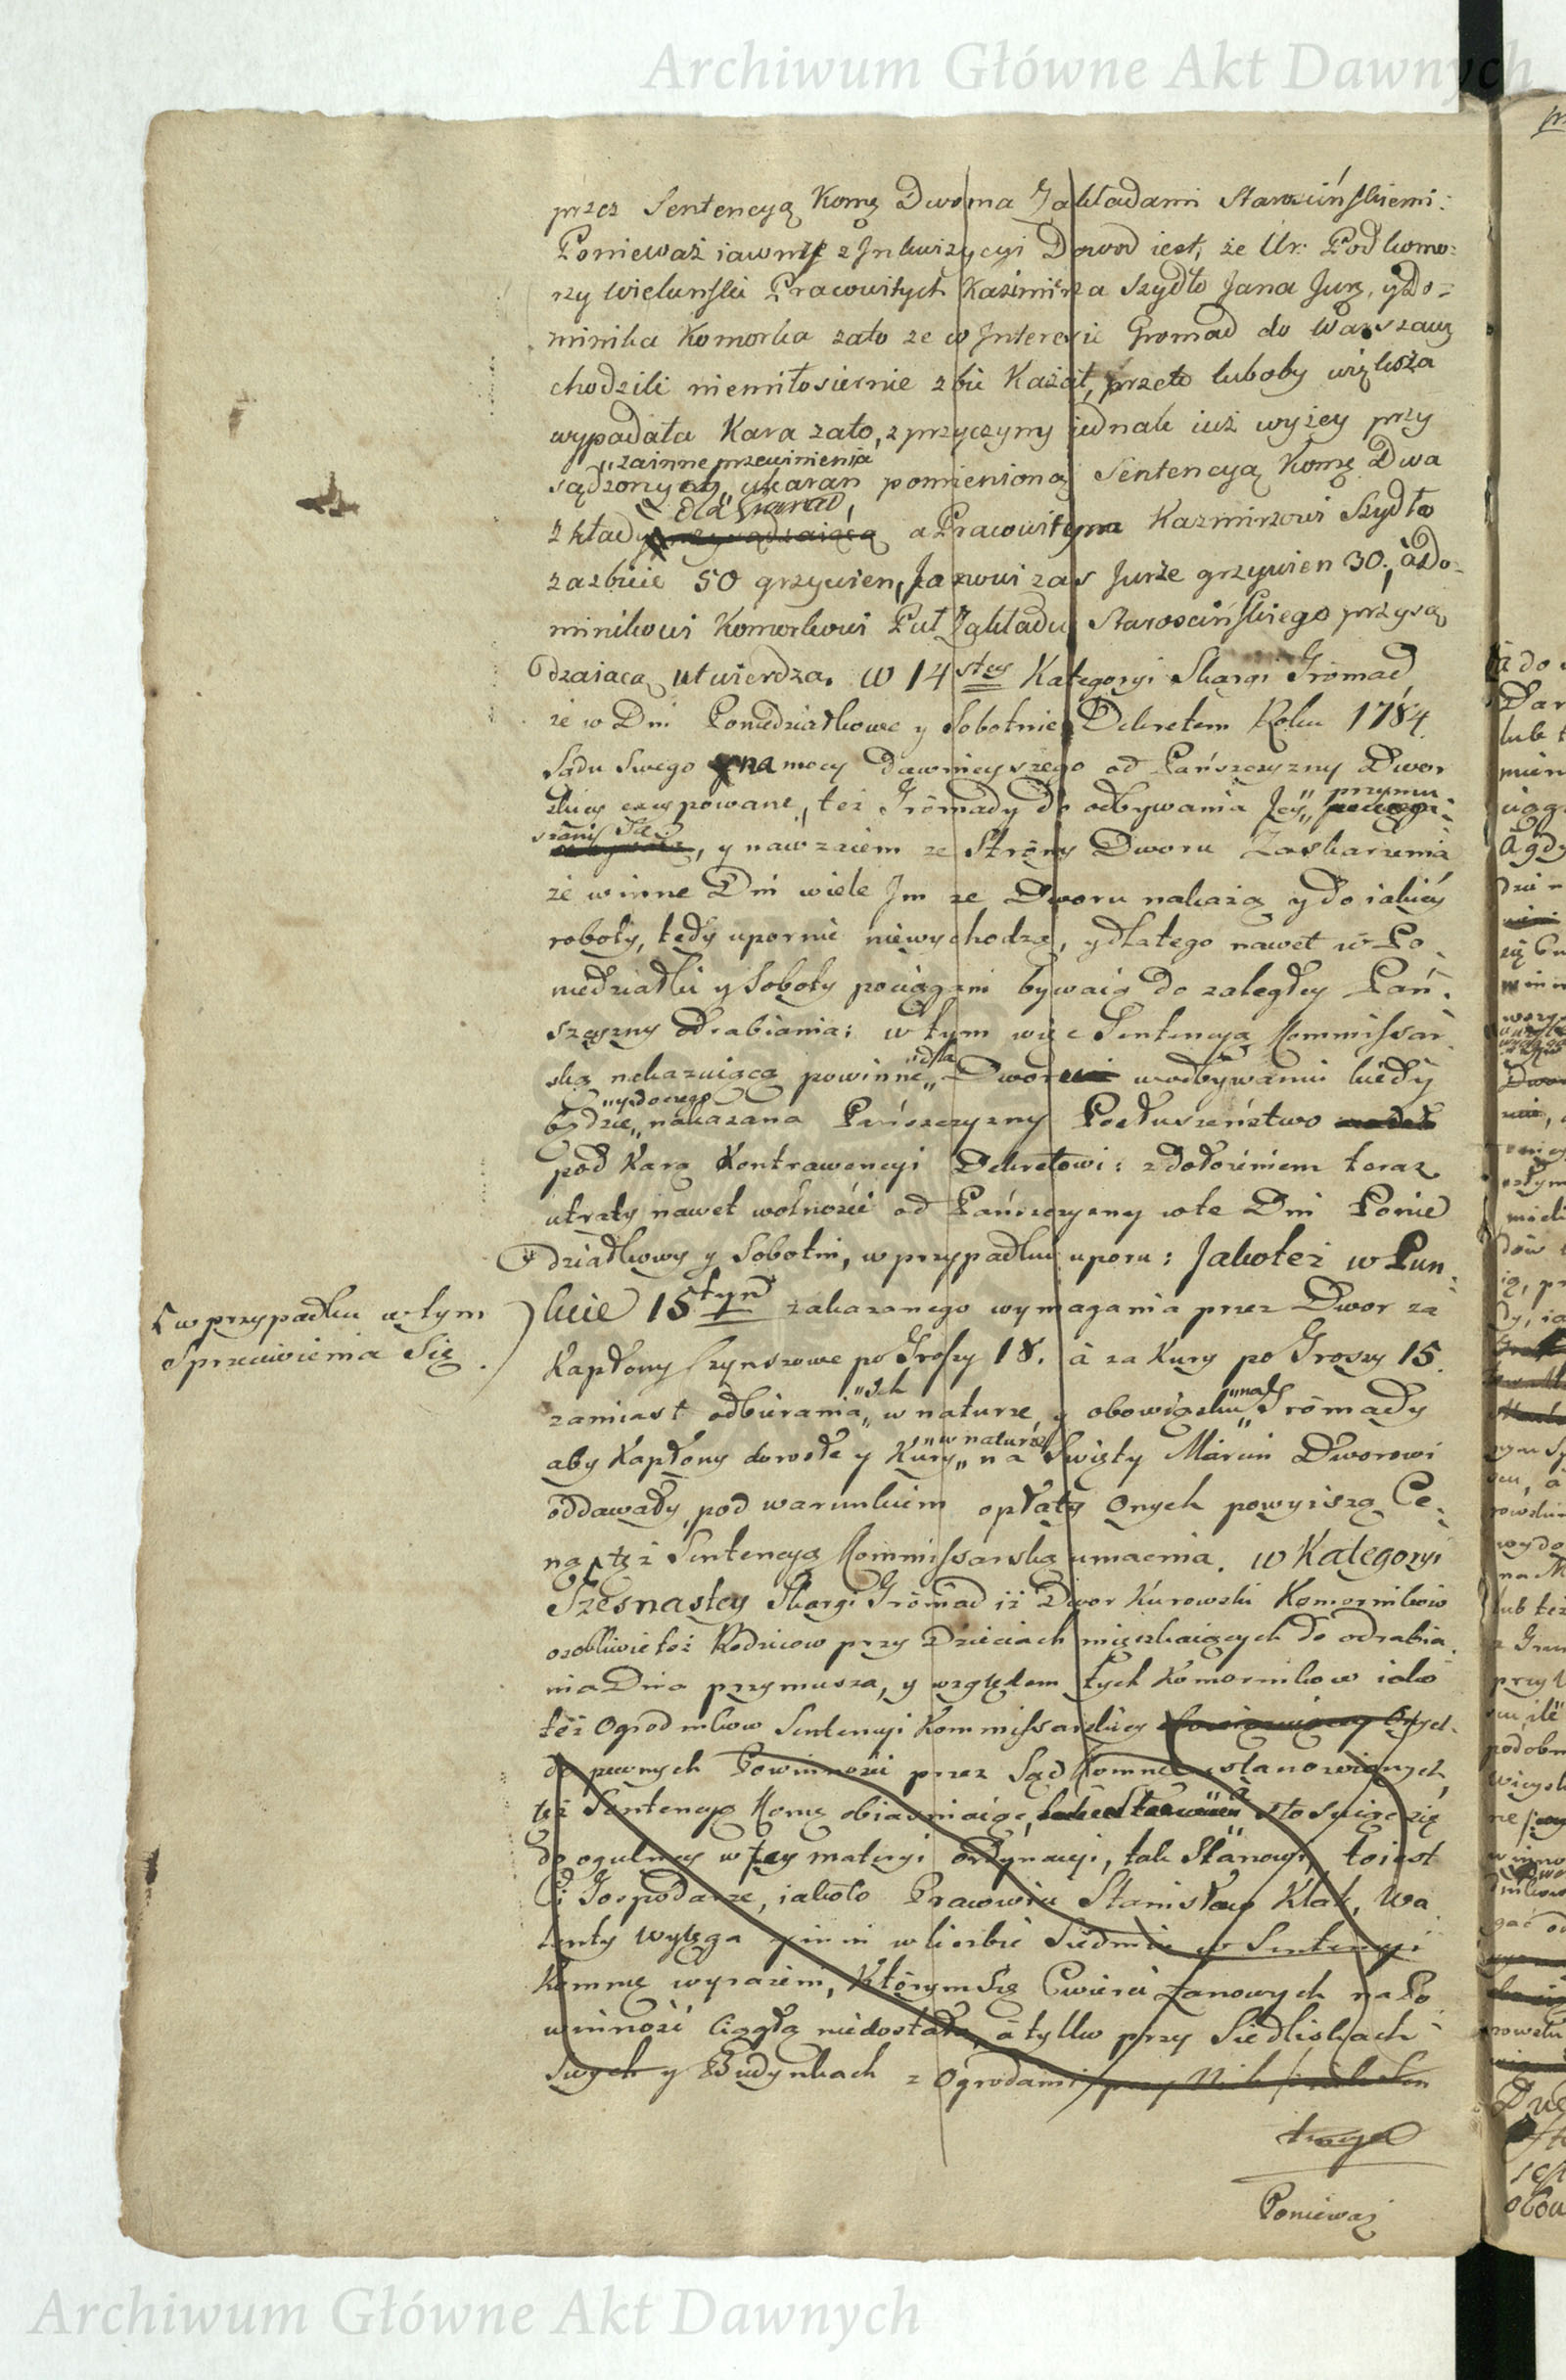 Archiwum Główne Akt Dawnych
przez Sentencyą Komę Dwoma Zakładami Starościńskiemi:
Ponieważ iawny z Inkwizycyi Dowod iest, że Ur: Podkomo:
rzy Wielunski Pracowitych Kazimirza Szydło Jana Jurę, y Do=
minika Komorka zato ze w Interesie Gromad do Warszawy
chodzili niemiłosiernie zbić Kazał, przeto luboby większa
wypadała Kara zato, z przyczyny iednak iuż wyżey przy
"za inne przewinienia
sądzonych,, ukarań pomienioną Sentencyą Komę Dwa
dla Gromad,
Zkłady a Pracowitym Kazmirzowi Szydło
za zbicie 50 grzywien, Janowi zas Jurze grzywien 30., a Do=
minikowi Komorkowi Puł Zakładu Starościńskiego przysą
dzaiącą utwierdza. W 14stey Kategoryi Skargi Gromad
że w Dni Poniedziałkowe y Sobotnie Dekretem Roku 1784.
Sądu Swego na mocy dawnieyszego od Pańszczyzny Dwor
skiey excypowane, też Gromady do odbywania Jey,, przymu
szani Są, y nawzaiem ze Strony Dworu Zaskarzenia
że w inne Dni wiele Jm ze Dworu nakażą y do iakiey
roboty, tedy upornie niewychodzą, y dlatego nawet w Po
niedziałki y Soboty pociągani bywaią do zaległey Pań:
szczyzny odrabiania: w tym więc Sentencyą Kommissar
ską nakazuiącą powinne,, "dla Dworu w odbywaniu kiedy
"y do czego
będzie,, nakazana Pańszczyzny Posłuszeństwo
pod Karą Kontrawencyi Dekretowi: z dołożeniem teraz
utraty nawet wolności od Pańszczyzny w te Dni Ponie
działkowy y Sobotni, w przypadku uporu: Jakoteż w Pun
w przypadku w tym
Sprzeciwienia Się.
kcie 15tym zakazanego wymagania przez Dwor za
Kapłony Czynszowe po Groszy 18. a za Kury po Groszy 15.
zamiast odbierania,, "ich w naturze, y obowiązku,, "na Gromady
aby Kapłony dorosłe y Kury,, "w naturze na Swięty Marcin Dworowi
oddawały, pod warunkiem opłaty onych powyższą Ce:
ną, też Sentencyą Kommissarską umacnia. w Kategoryi
Szesnastey Skargi Gromad iż Dwor Kurowski Komornikow
osobliwie też Rodzicow przy Dzieciach mięszkaiących do odrabia
nia Dnia przymusza, y względem tych Komornikow iako
też Ogrodnikow Sentencyi Kommissarskiey
do pewnych Powinności przez Sąd Komne ustanowionych,
też Sentencyą Komę obiasniaiąc, stosuiąc się
do ogulney w tey materyi ordynacyi, tak Stanowi, to iest
Ci Gospodarze, iakoto Pracowici Stanisław Klak, Wa
lenty Wylęga y inni w liczbie Siedmiu w Sentencyi
Komme wyrażeni, Którym Się Cwierci Łanowych na Po
winność Ciągłą niedostało, a tylko przy Siedliskach
Swych y Budynkach z Ogrodami przy Nich
Ponieważ
Archiwum Główne Akt Dawnych